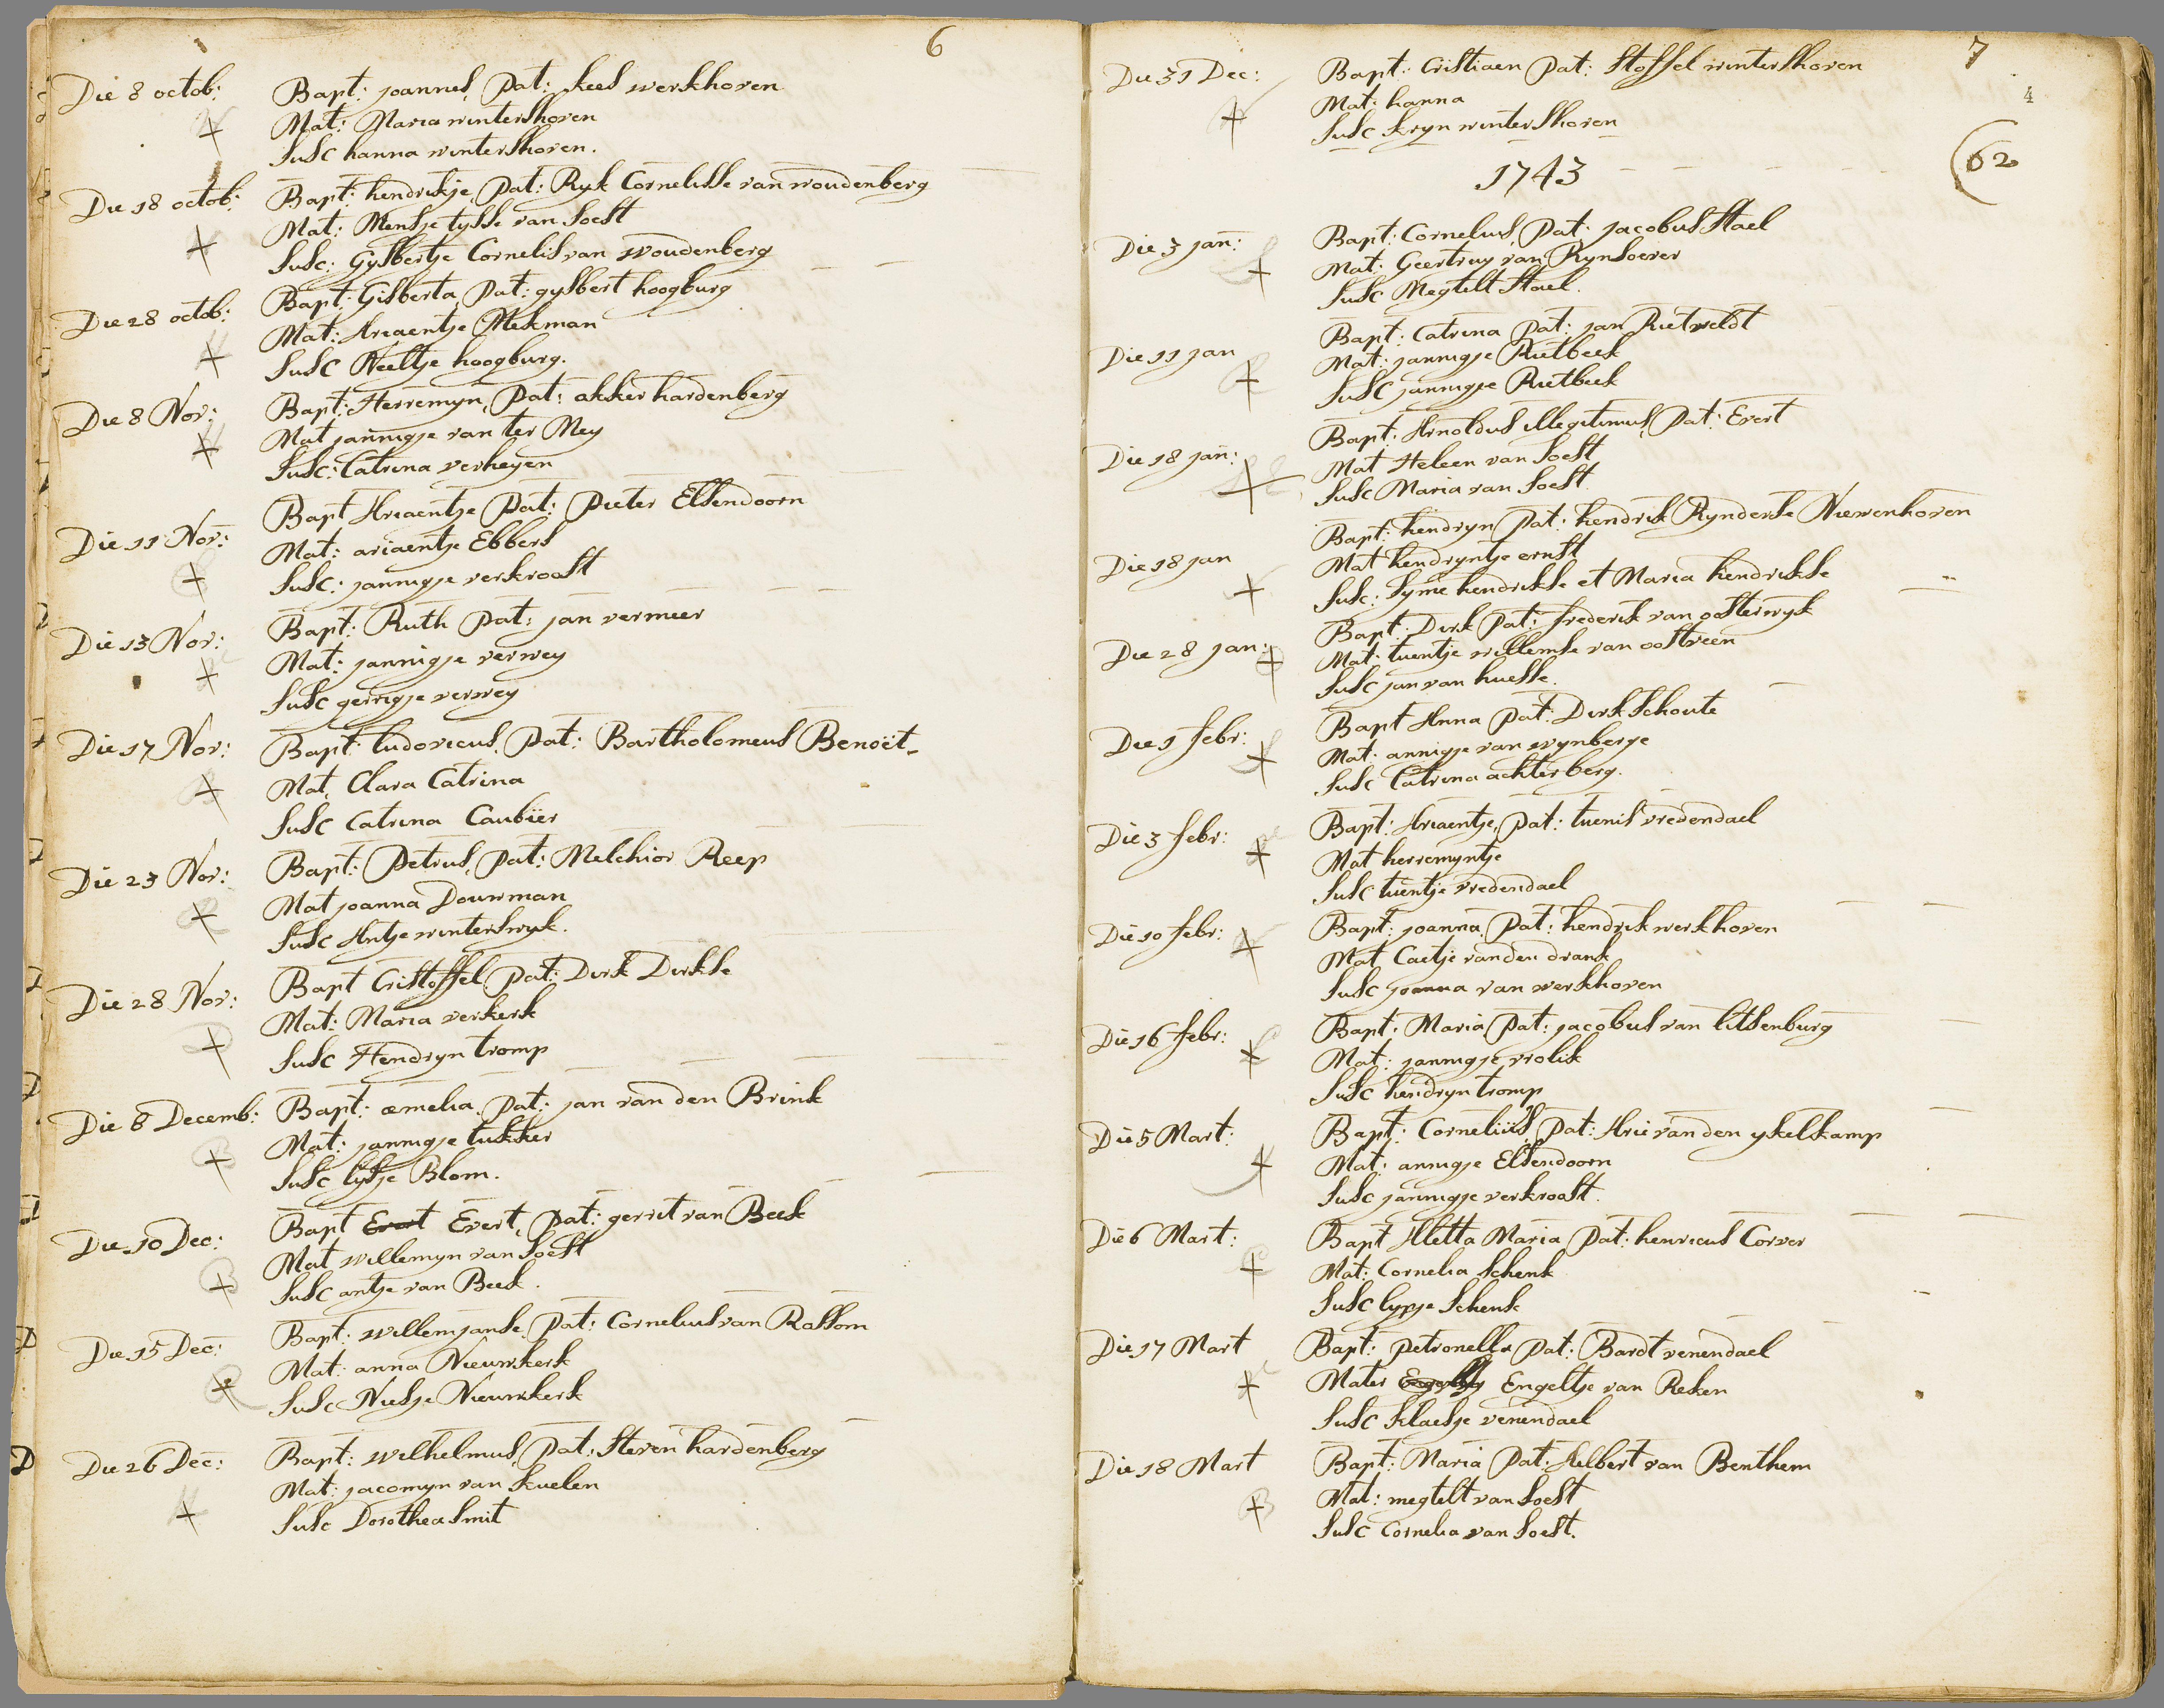 6
Die 8 octob: Bapt: joannes, Pat: kees werkhoven
Mat: Maria winterskoven
Susc hanna winterskoven.
Die 18 octob: Bapt: hendrikje, Pat: Ryk Cornelisse van woudenberg
Mat: Mensje tysse van Soest
Susc: Gysbertje Cornelis van woudenberg
Die 28 octob: Bapt: Gisberta, Pat: gysbert hoogburg
Mat: Ariaentje Mekman
Susc Neeltje hoogburg.
Die 8 Nov: Bapt: Herremyn, Pat: akker hardenberg
Mat jannigje van ter Mey
Susc: Catrina verheyen
Die 11 Nov: Bapt Ariaentje Pat: Pieter Elsendoorn
Mat: ariaentje Ebbers
Susc: jannigje verkroost
Die 13 Nov: Bapt: Ruth Pat: jan vermeer
Mat: jannigje verwey
Susc gerrigje verwey
Die 17 Nov: Bapt: ludovicus, Pat: Bartholomeus Benoit
Mat, Clara Catrina
Susc Catrina Caubier
Die 23 Nov: Bapt: Petrus, Pat: Melchior Reep
Mat joanna Douwman
Susc Antje winterswyk.
Die 28 Nov: Bapt Cristoffel Pat: Dirk Dirkse
Mat: Maria verkerk
Susc Hendryn tromp
Die 8 Decemb: Bapt: æmelia, Pat: jan van den Brink
Mat: jannigje tukker
Susc lysje Blom.
Die 10 Dec: Bapt Evert Evert, Pat: gerrit van Beek
Mat willemyn van Soest
Susc antje van Beek.
Die 15 Dec: Bapt: willem janse, Pat: Cornelius van Rossom
Mat: anna Nieuwkerk
Susc Niesje Nieuwkerk
Die 26 Dec: Bapt: wilhelmus, Pat: Steven hardenberg
Mat: jacomyn van kuelen
Susc Dorothea Smit
7
4
62
Die 31 Dec: Bapt: Cristiaen Pat: Stoffel winterskoven
Mat: hanna
Susc kryn winterskoven
1743
Die 3 jan: Bapt: Cornelius, Pat: jacobus Stael
Mat: Geertruy van Rynsoever
Susc Megtelt Stael.
Die 11 jan Bapt: Catrina Pat: jan Rietveldt
Mat: jannigje Rietbeek
Susc jannigje Rietbeek
Die 18 jan: Bapt: Arnoldus illegitimus, Pat: Evert
Mat Heleen van Soest
Susc Maria van Soest.
Die 18 jan Bapt: hendryn Pat: hendrik Rynderse Niewenhoven
Mat hendryntje ernst
Susc: Syme hendrikse et Maria hendrikse
Die 28 jan: Bapt: Dirk Pat: frederik van oosterwyk
Mat: tuentje willemse van oostveen
Susc jan van huesse.
Die 1 febr: Bapt Anna Pat: Dirk Schoute
Mat: annigje van wynberge
Susc Catrina achterberg.
Die 3 febr: Bapt: Ariaentje, Pat: tuenis vredendael
Mat herremyntje
Susc tuentje vredendael
Die 10 febr: Bapt: joanna, Pat: hendrik werkhoven
Mat Caetje van den drank
Susc joanna van werkhoven
Die 16 febr: Bapt: Maria, Pat: jacobus van litsenburg
Mat: jannigje vrolik
Susc hendryn tromp
Die 5 Mart: Bapt: Cornelius, Pat: Arie van den ykelkamp
Mat: annigje Elsendoorn
Susc jannigje verkroost.
Die 6 Mart: Bapt Aletta Maria Pat: henricus Corver
Mat: Cornelia Schenk
Susc lypje Schenk
Die 17 Mart Bapt: Petronella Pat: Bardt venendael
Mater Engeltje van Reken
Susc klaesje venendael
Die 18 Mart Bapt: Maria Pat: Helbert van Benthem
Mat: megtelt van Soest
Susc Cornelia van Soest.